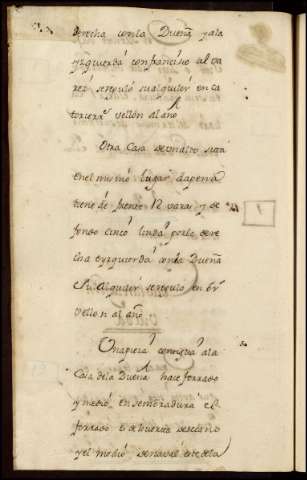 derecha con la Dueña y a la
yzquierda con francisco alva
rez se regulò su alquiler en ca
torce rr.s vellon al año
Otra Casa de mano sita
en el mismo lugar
tiene de frente 12 varas y de
fondo cinco linda por la dere
cha e yzquierda con la Dueña
Su Alquiler se regulò en 6 rr.
vellon al año.
Una pieza contigua a la
Casa de la Dueña hace ferrado
y medio en sembradura el
ferrado de huerta de secano
y el medio de nabal este de la
1